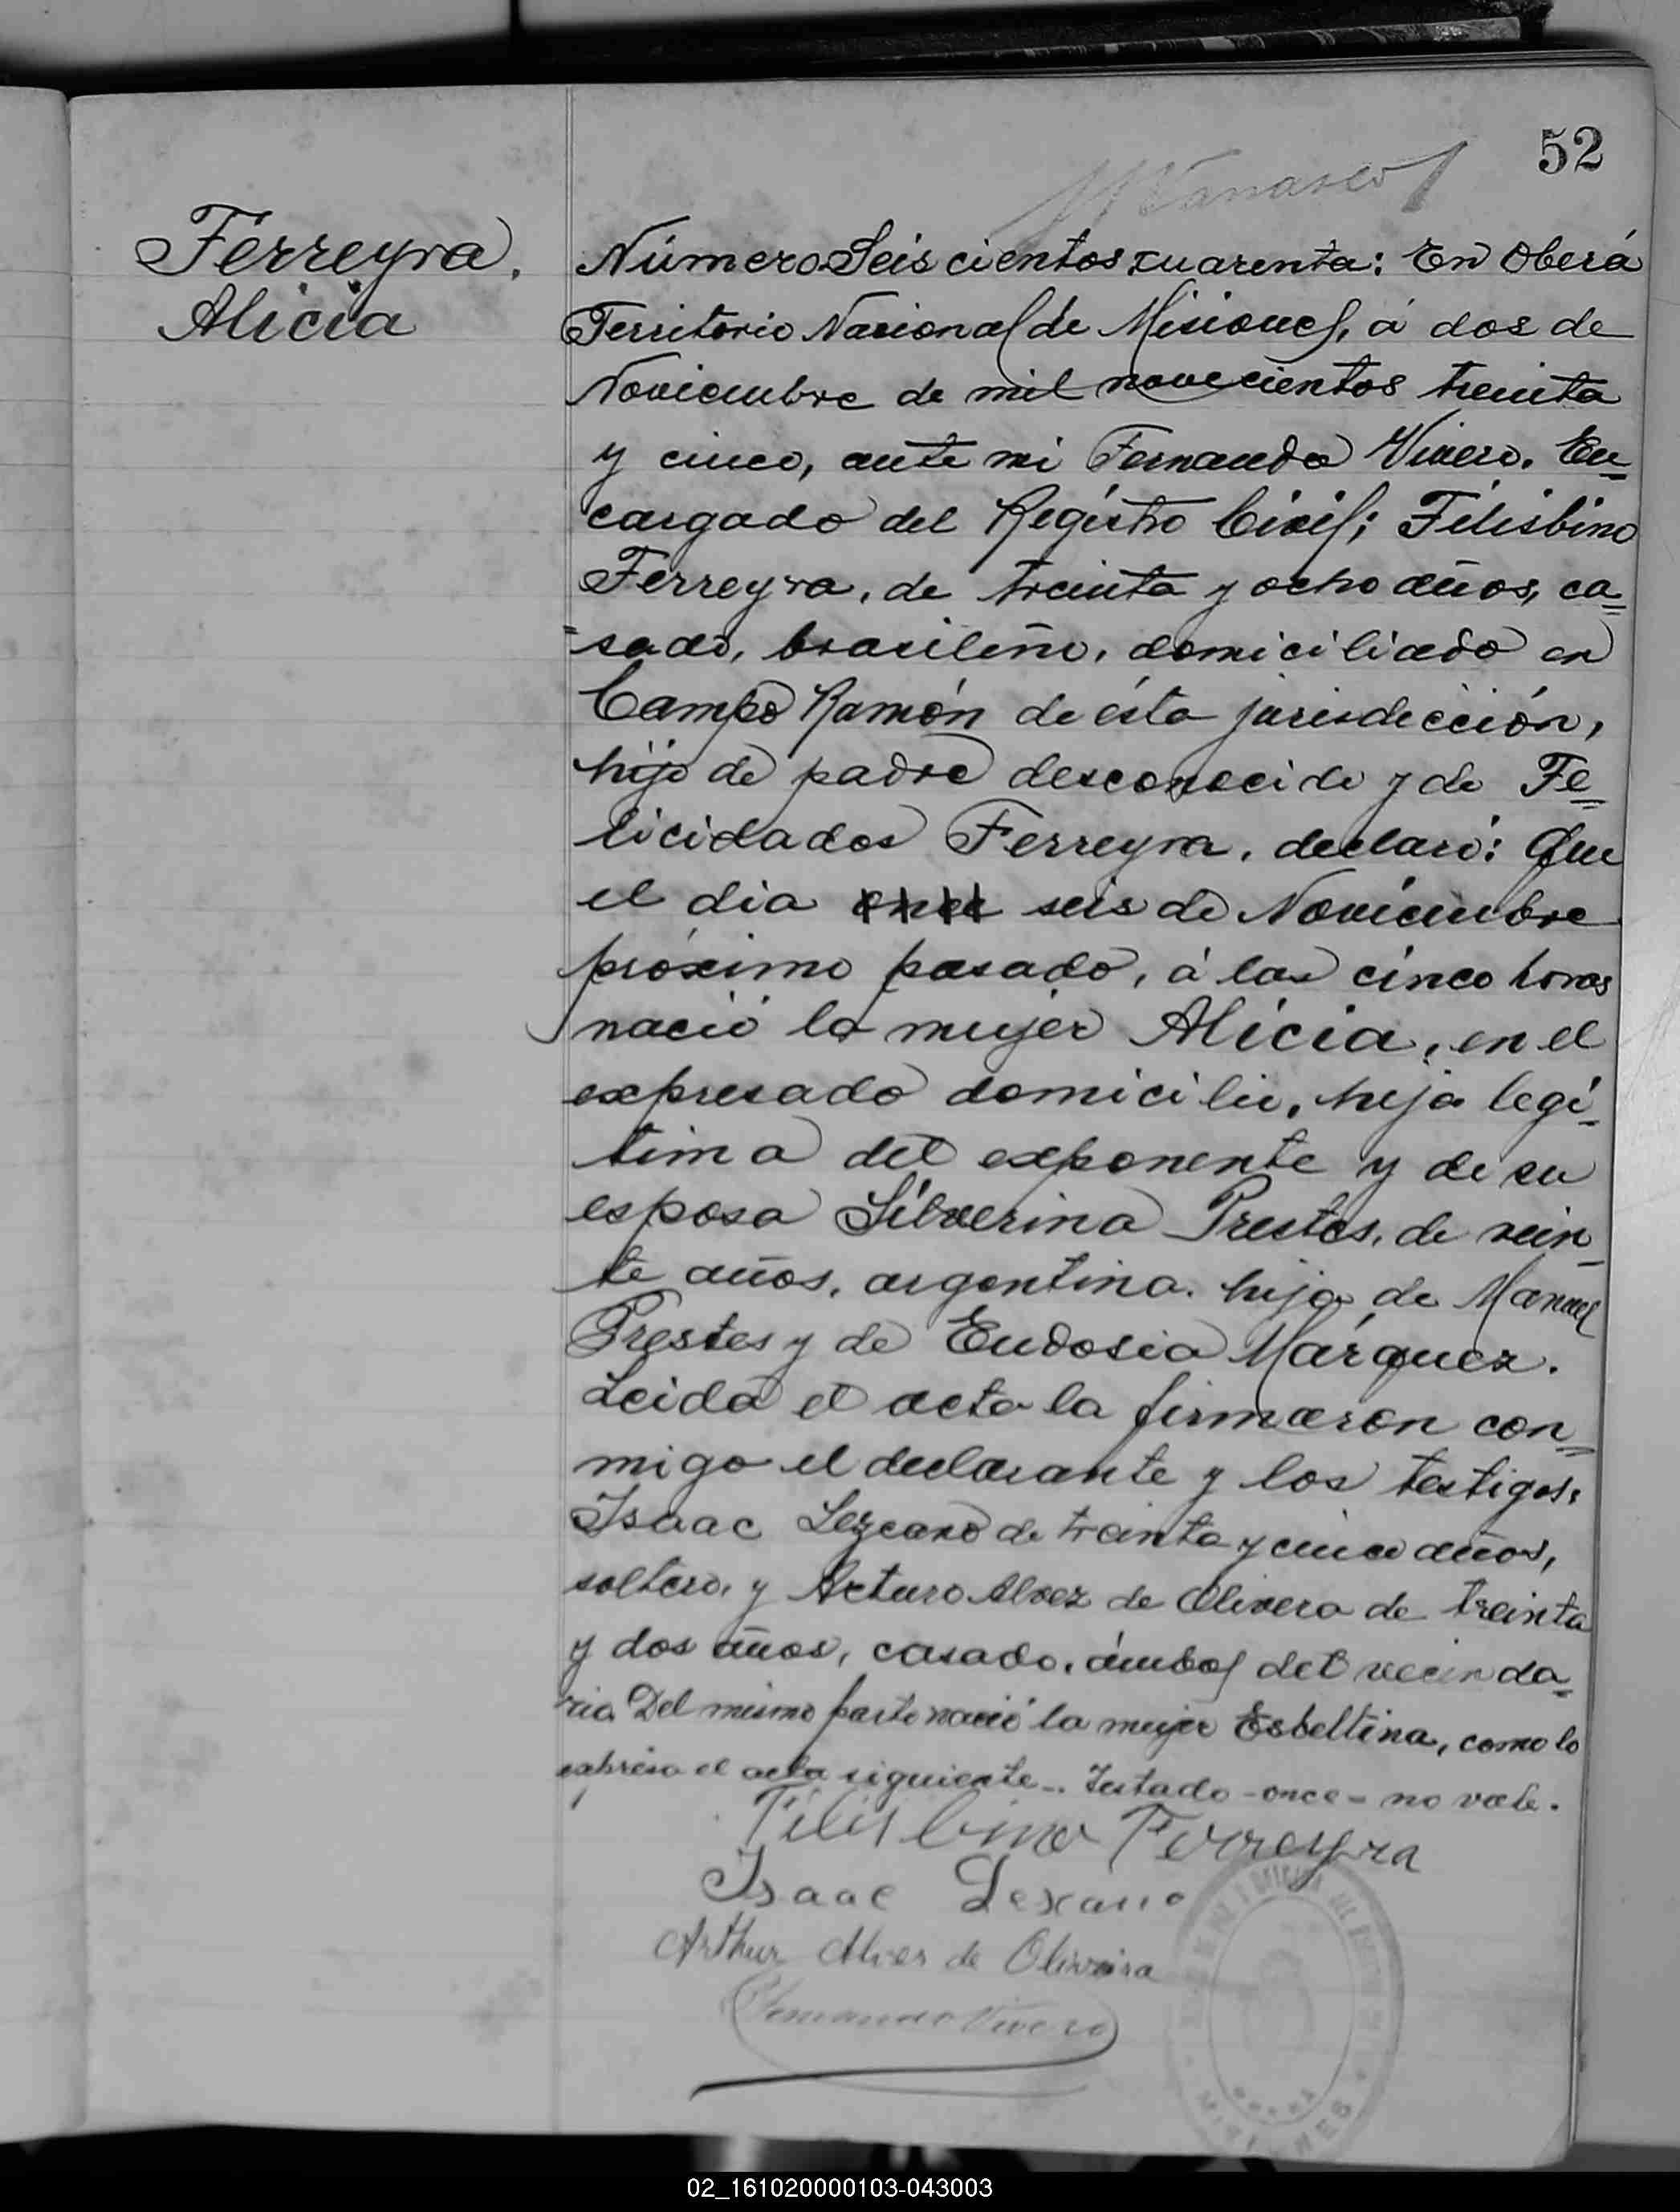 52
Ferreyra,
Alicia
Número Seiscientos cuarenta: En Oberá
Territorio Nacional de Misiones, á dos de
Noviembre de mil novecientos treinta
y cinco, ante mi Fernando Vivero, En=
cargado del Registro Civil; Filisbino
Ferreyra, de treinta y ocho años, ca=
=sado, brasileño, domiciliado en
Campo Ramón de ésta jurisdicción,
hijo de padre desconocido y de Fe=
licidados Ferreyra, declaró: Que
el dia once seis de Noviembre
próximo pasado, á las cinco horas
nació la mujer Alicia, en el
expresado domicilio, hija legí=
tima del exponente y de su
esposa Silverina Prestes, de vein=
te años, argentina, hija de Manuel
Prestes y de Eudosia Márquez.
Leida el acta la firmaron con=
migo el declarante y los testigos,
Isaac Lezcano de treinta y cinco años,
soltero, y Arturo Alvez de Olivera de treinta
y dos años, casado, ámbos del vecinda=
rio. Del mismo parto nació la mujer Esbeltina, como lo
expresa el acta siguiente_. Testado - once - no vale.
Filisbino Ferreyra
Isaac Lexano
Arthur Alves de Oliveira
Fernando Vivero
MISIONES
02_161020000103-043003